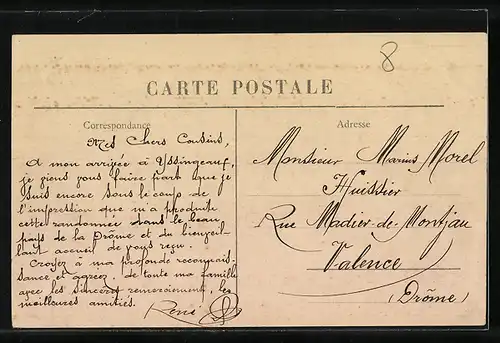 8
CARTE POSTALE
Correspondance
Adresse
Mes Chers Cousins,
A mon arrivée à Yssingeaux,
je viens vous faire part que je
suis encore sous le coup de
l'impression que m'a produite
cette randonnée dans le beau
pays de la Drôme et du bienveil-
lant accueil de vous reçu.
Croyez à ma profonde reconnais-
sance et agréez de toute ma famille
avec les sincères remerciements, les
meilleures amitiés.
René
Monsieur Marius Morel
Huissier
Rue Madier-de-Montjau
Valence
(Drôme)